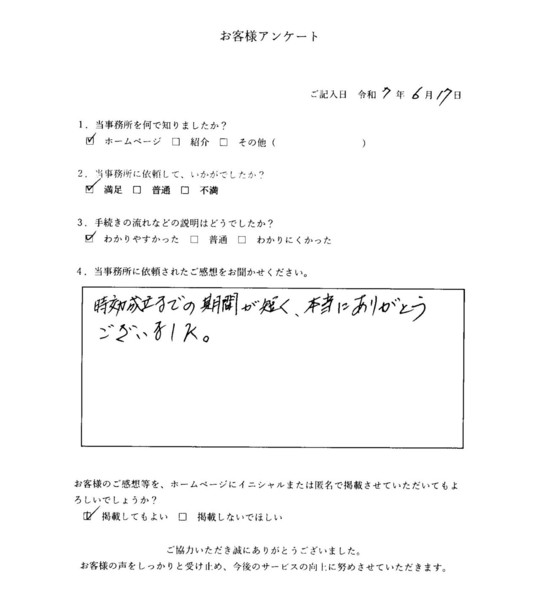 お客様アンケート
ご記入日 令和 7 年 6 月 17 日
1．当事務所を何で知りましたか？
☑ ホームページ □ 紹介 □ その他（ ）
2．当事務所に依頼して、いかがでしたか？
☑ 満足 □ 普通 □ 不満
3．手続きの流れなどの説明はどうでしたか？
☑ わかりやすかった □ 普通 □ わかりにくかった
4．当事務所に依頼されたご感想をお聞かせください。
時効成立までの期間が短く、本当にありがとう
ございました。
お客様のご感想等を、ホームページにイニシャルまたは匿名で掲載させていただいてもよ
ろしいでしょうか？
☑ 掲載してもよい □ 掲載しないでほしい
ご協力いただき誠にありがとうございました。
お客様の声をしっかりと受け止め、今後のサービスの向上に努めさせていただきます。